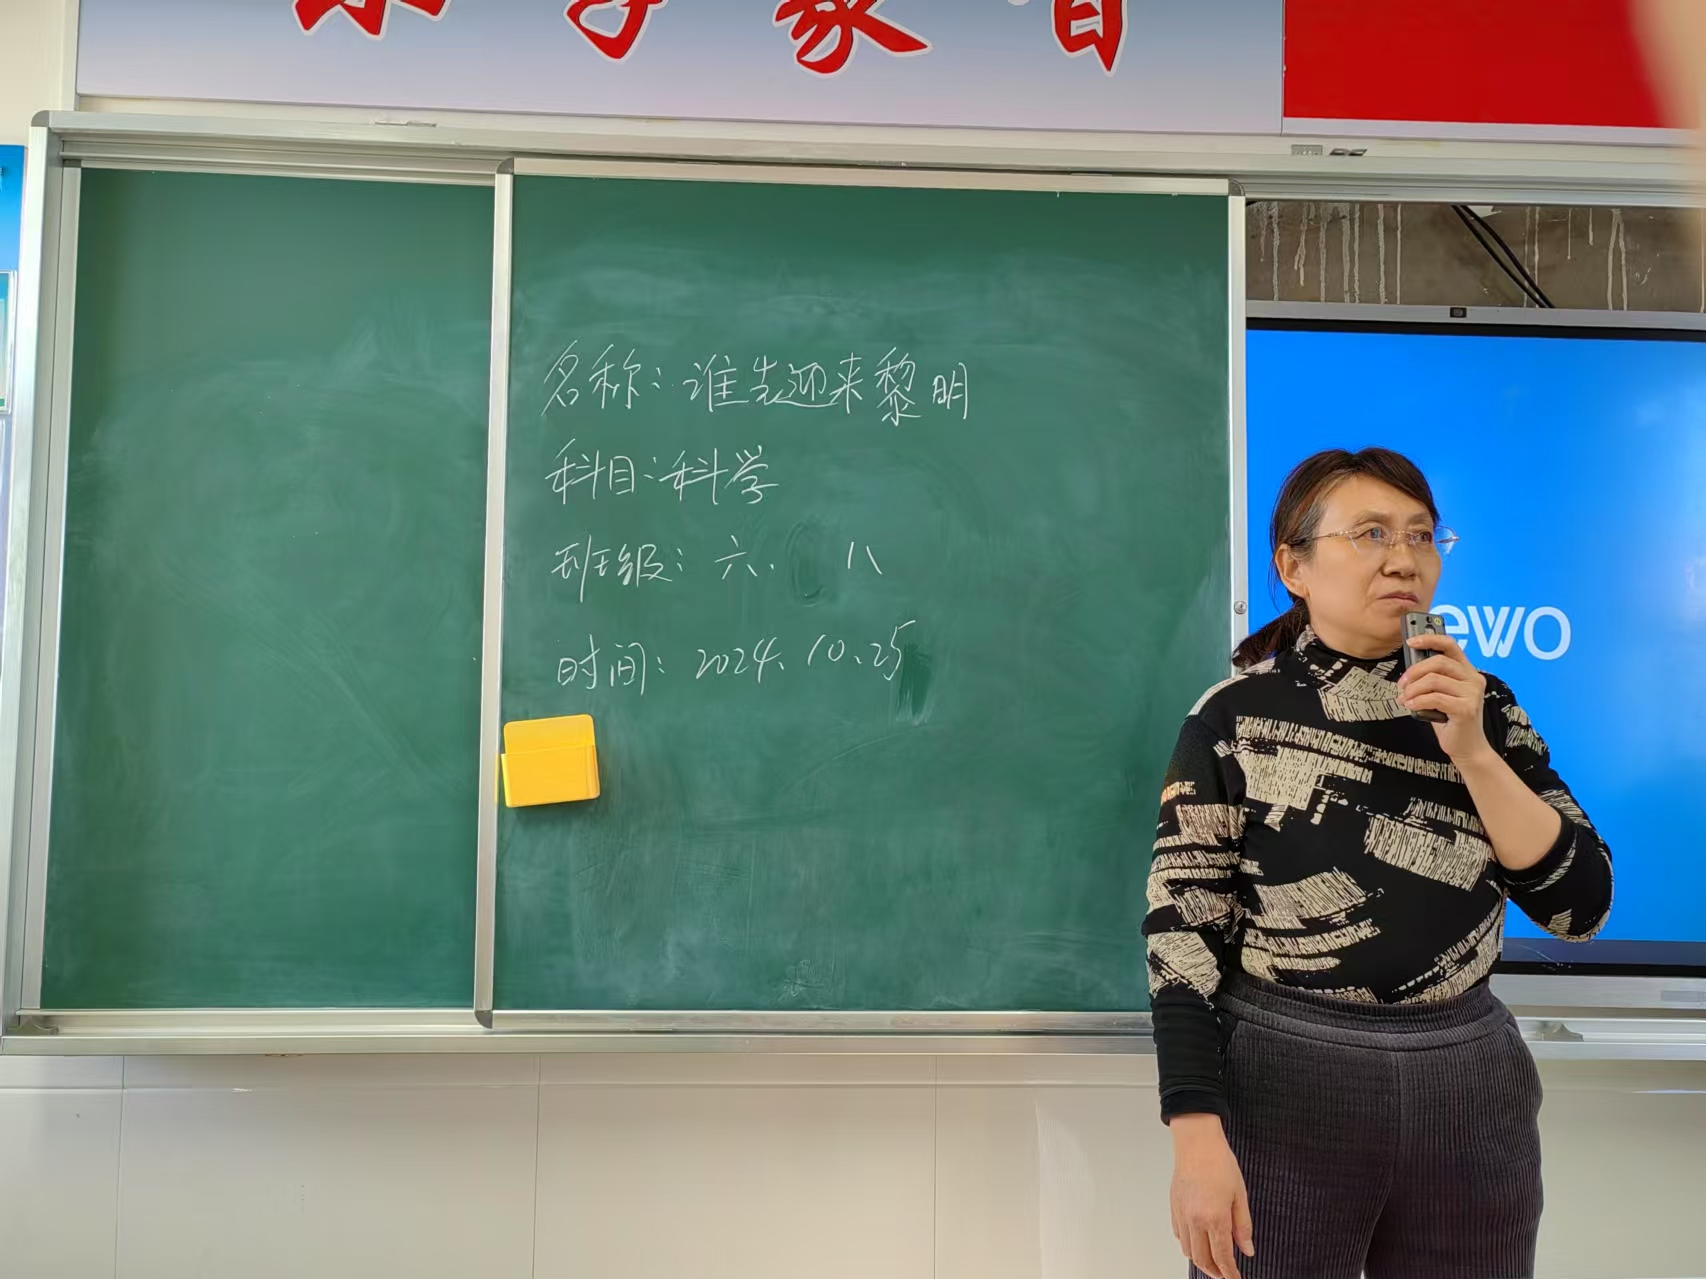 名称：谁先迎来黎明
科目：科学
班级：六. 八
时间：2024.10.25
ewo